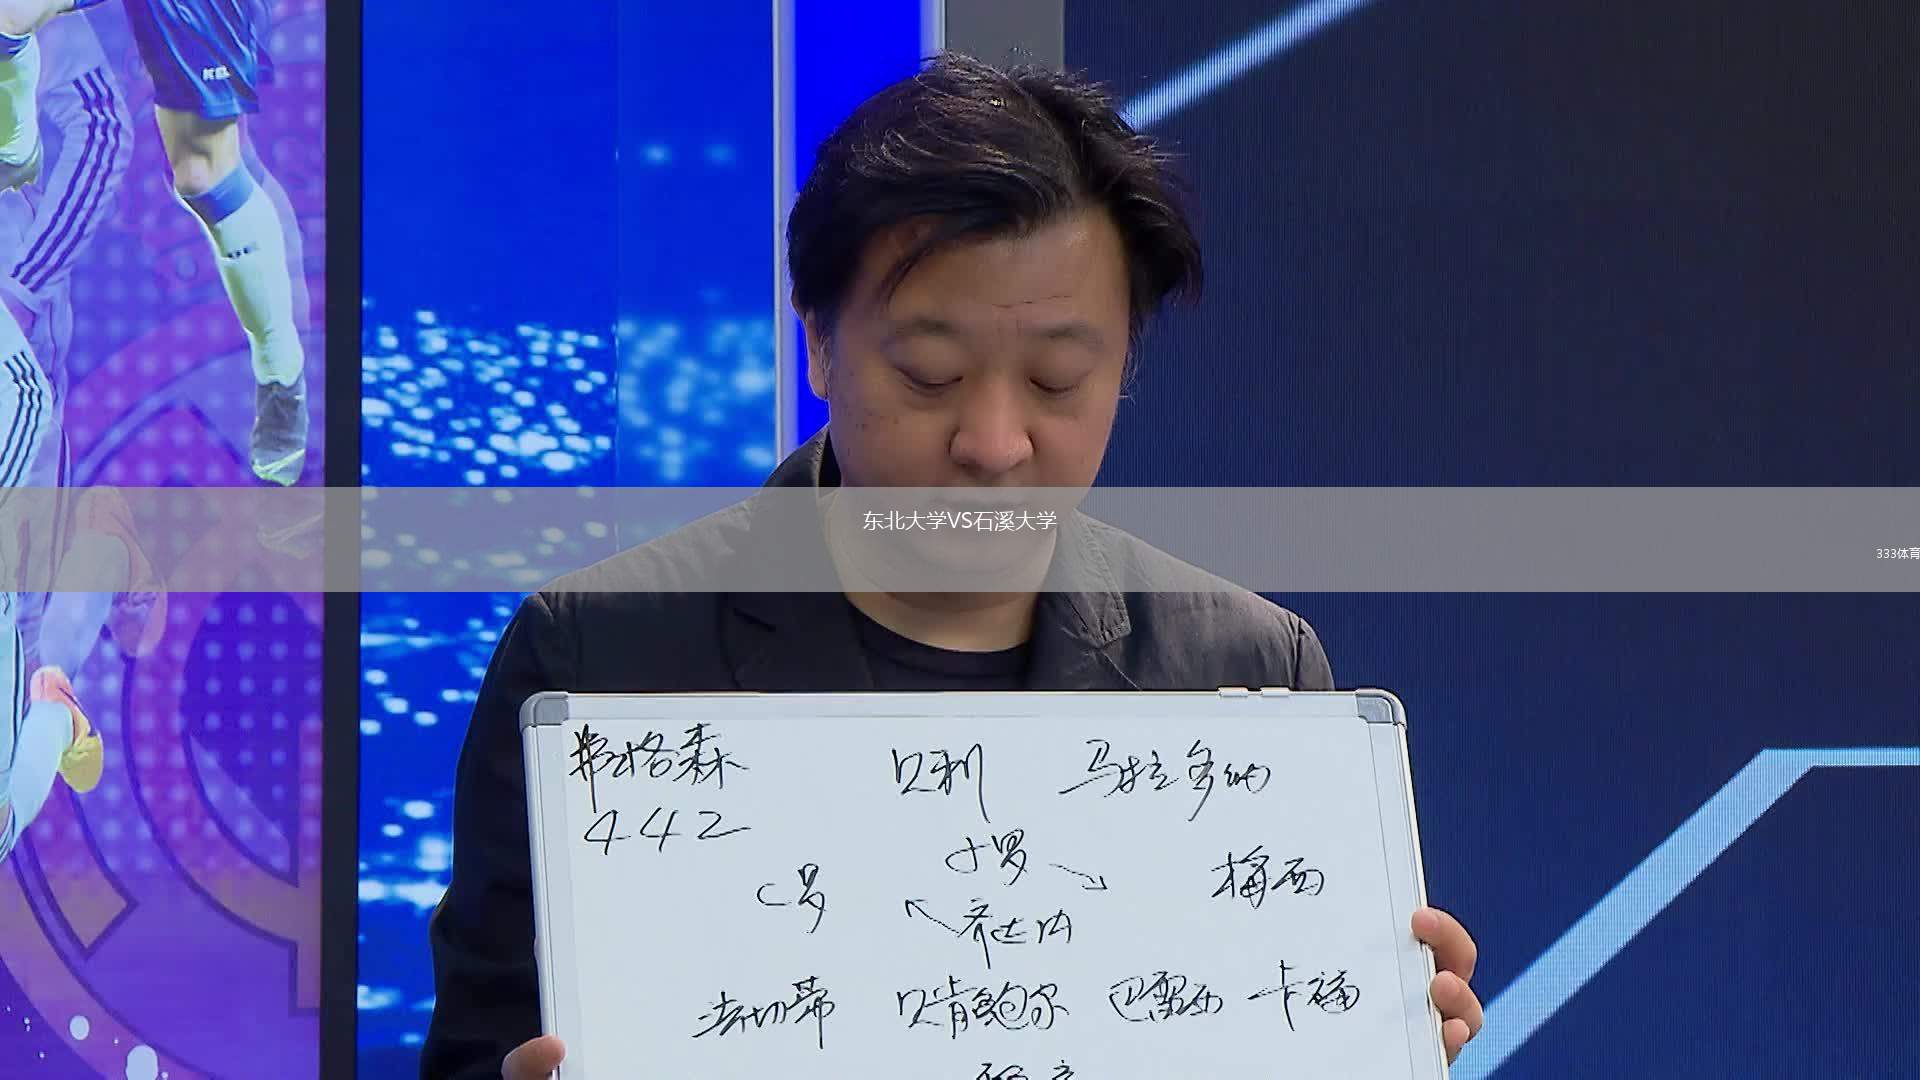 东北大学VS石溪大学
333体育
弗格森 贝利 马拉多纳
442
小罗
C罗 梅西
齐达内
法切蒂 贝肯鲍尔 巴雷西 卡福